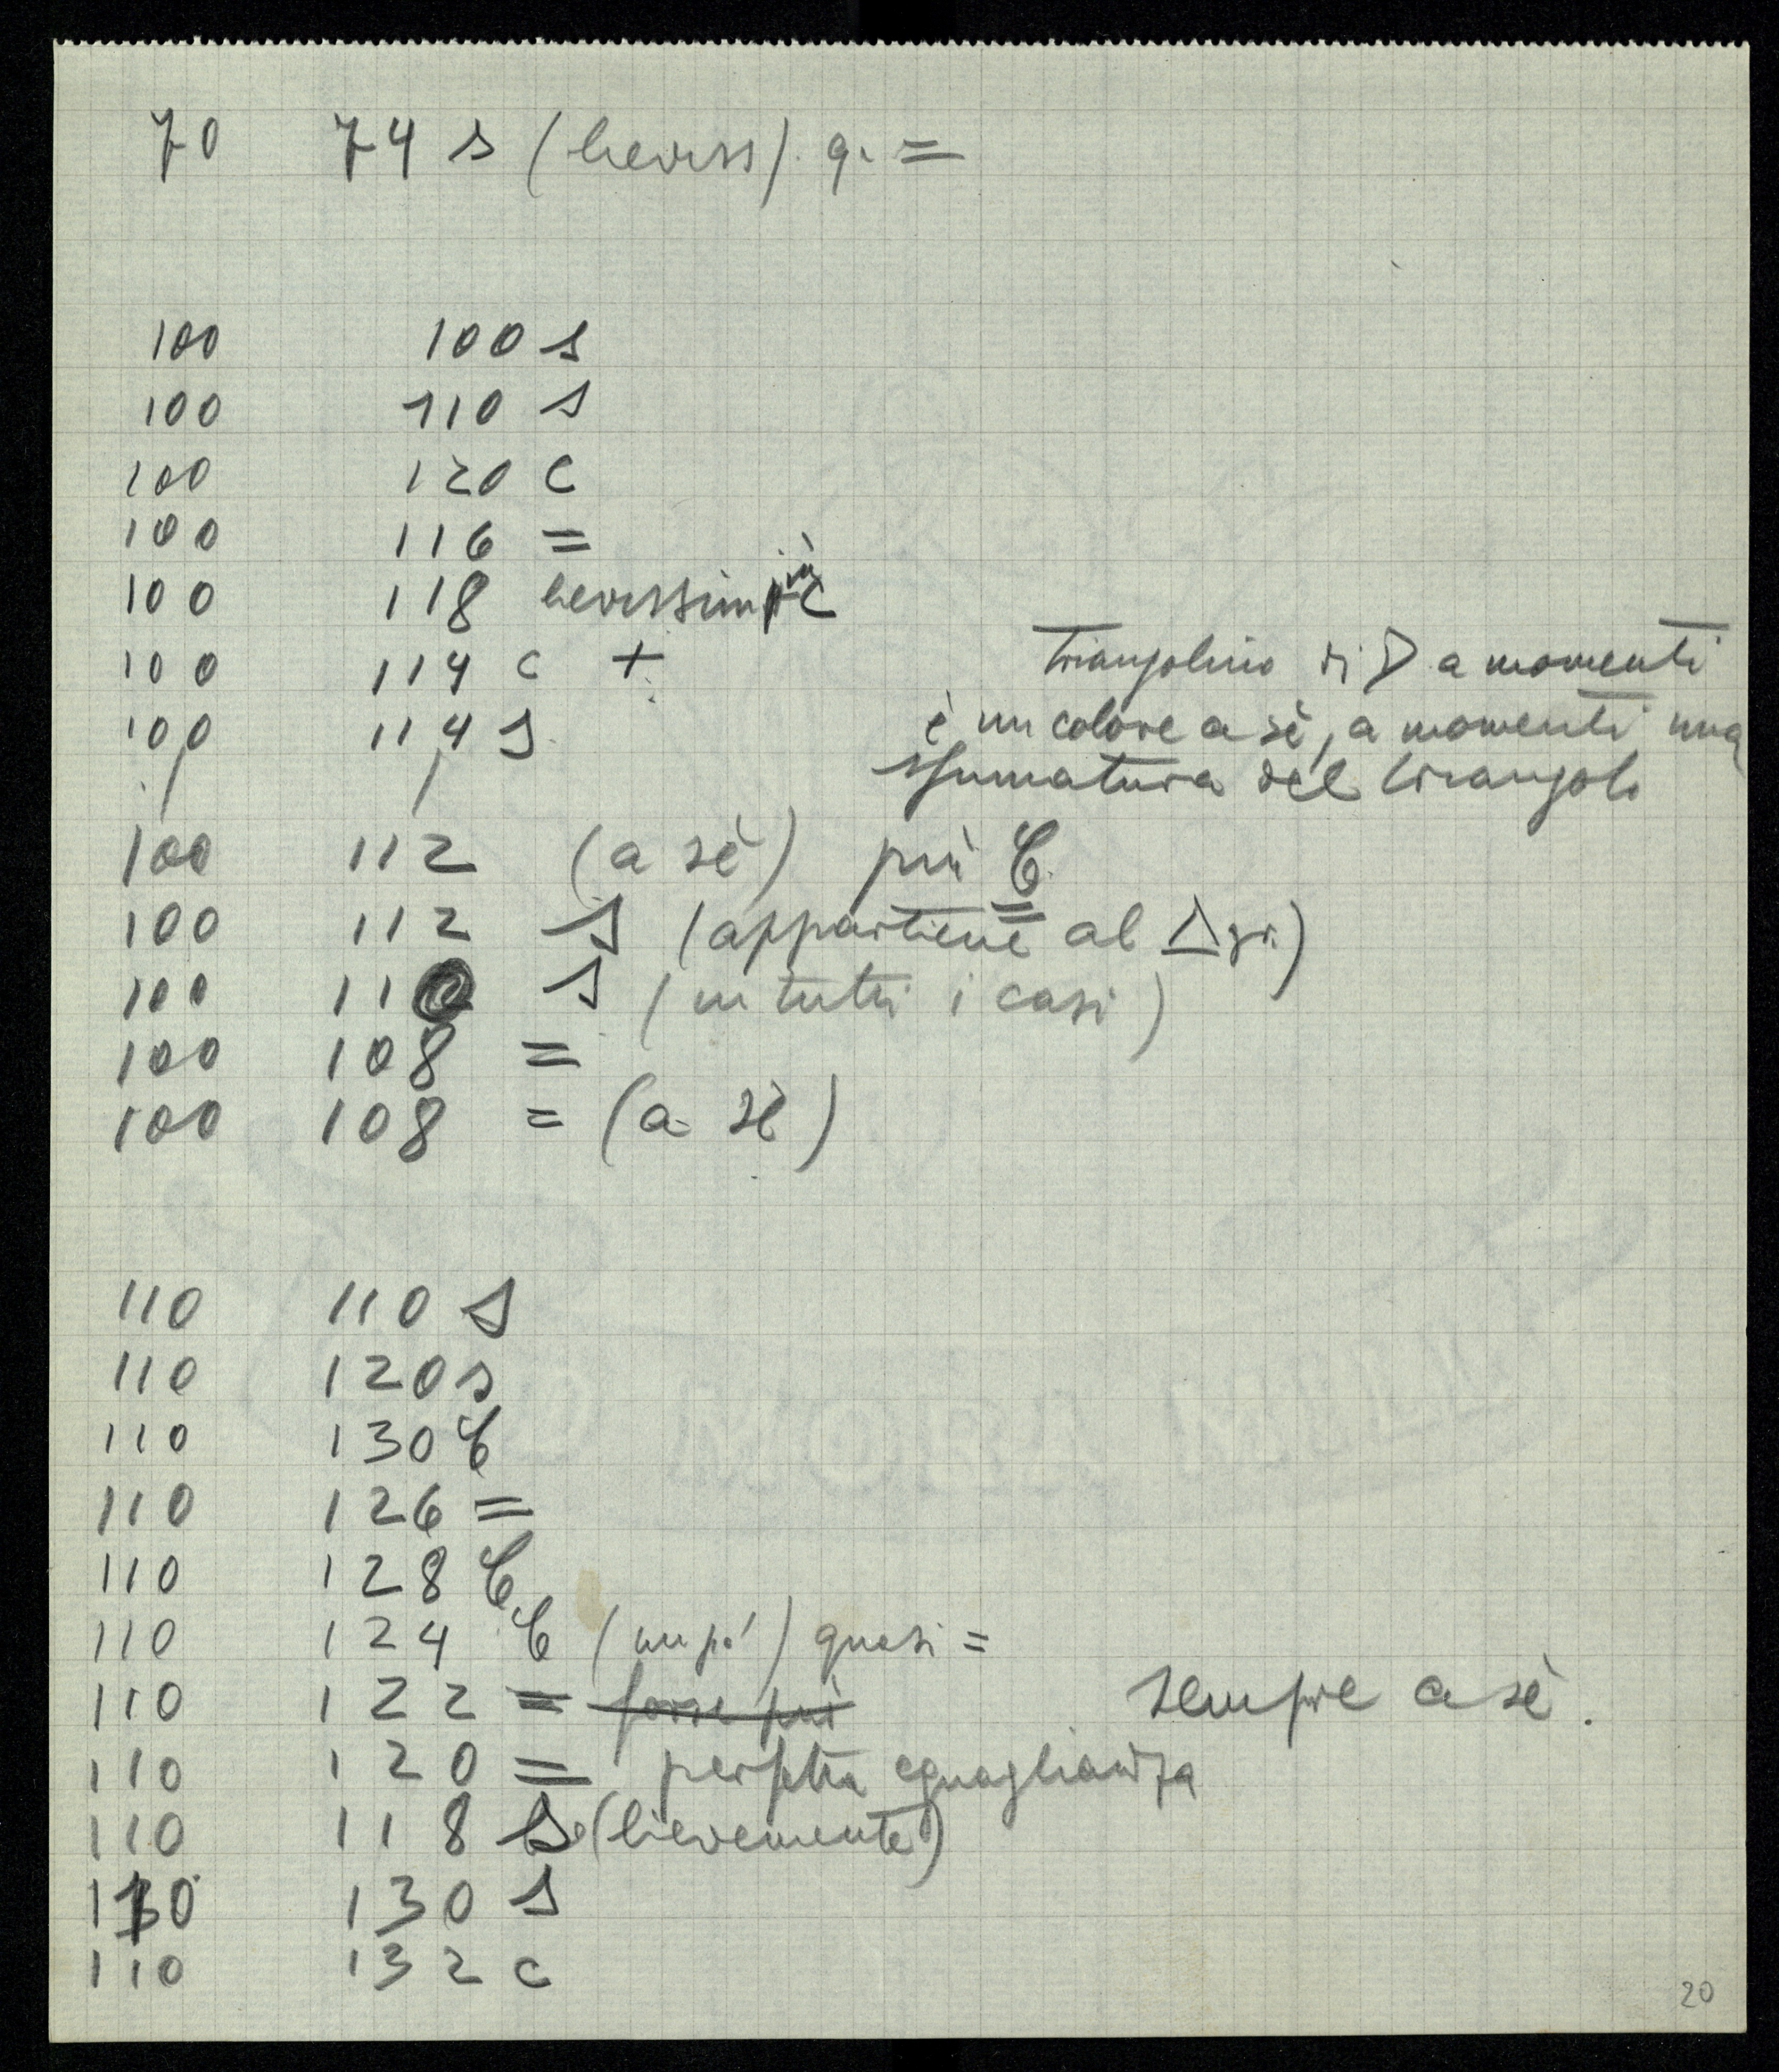 70 74 s (lieviss). q. =
100 100 s
100 110 s
100 120 C
100 116 =
100 118 lievissim più C
100 114 c +
100 114 S
triangolino di D a momenti
è un colore a sè, a momenti una
sfumatura del triangolo
100 112 (a sè) più C
100 112 S (appartiene al Δ gr.)
100 110 S (in tutti i casi)
100 108 =
100 108 = (a sè)
110 110 S
110 120 s
110 130 C
110 126 =
110 128 C
110 124 C (un po') quasi =
110 122 = forse più
sempre a sè.
110 120 = perfetta eguaglianza
110 118 S (lievemente)
110 130 S
110 132 c
20